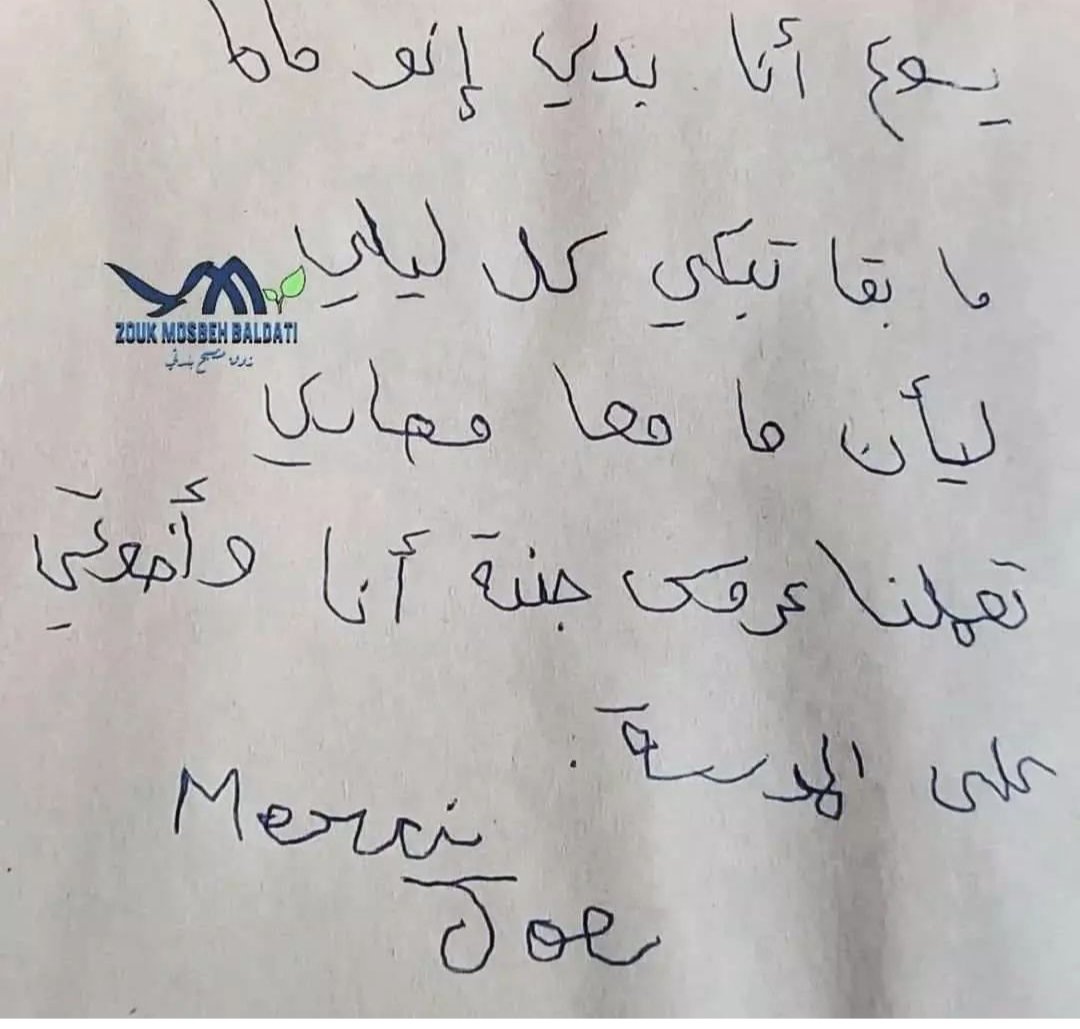 يسوع أنا بدي إنو ماما
ما بقا تبكي كل ليلي
ZOUK MOSBEH BALDATI
زوق مصبح بلدتي
ليأن ما معا مصاري
تعملنا عروس جبنة أنا وأخوتي
على المدرسة
Merci
Joe